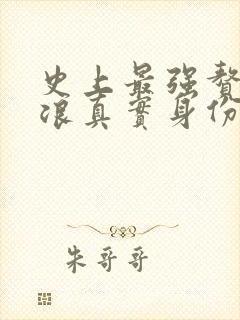 史上最强赘
浪真实身份
朱哥哥